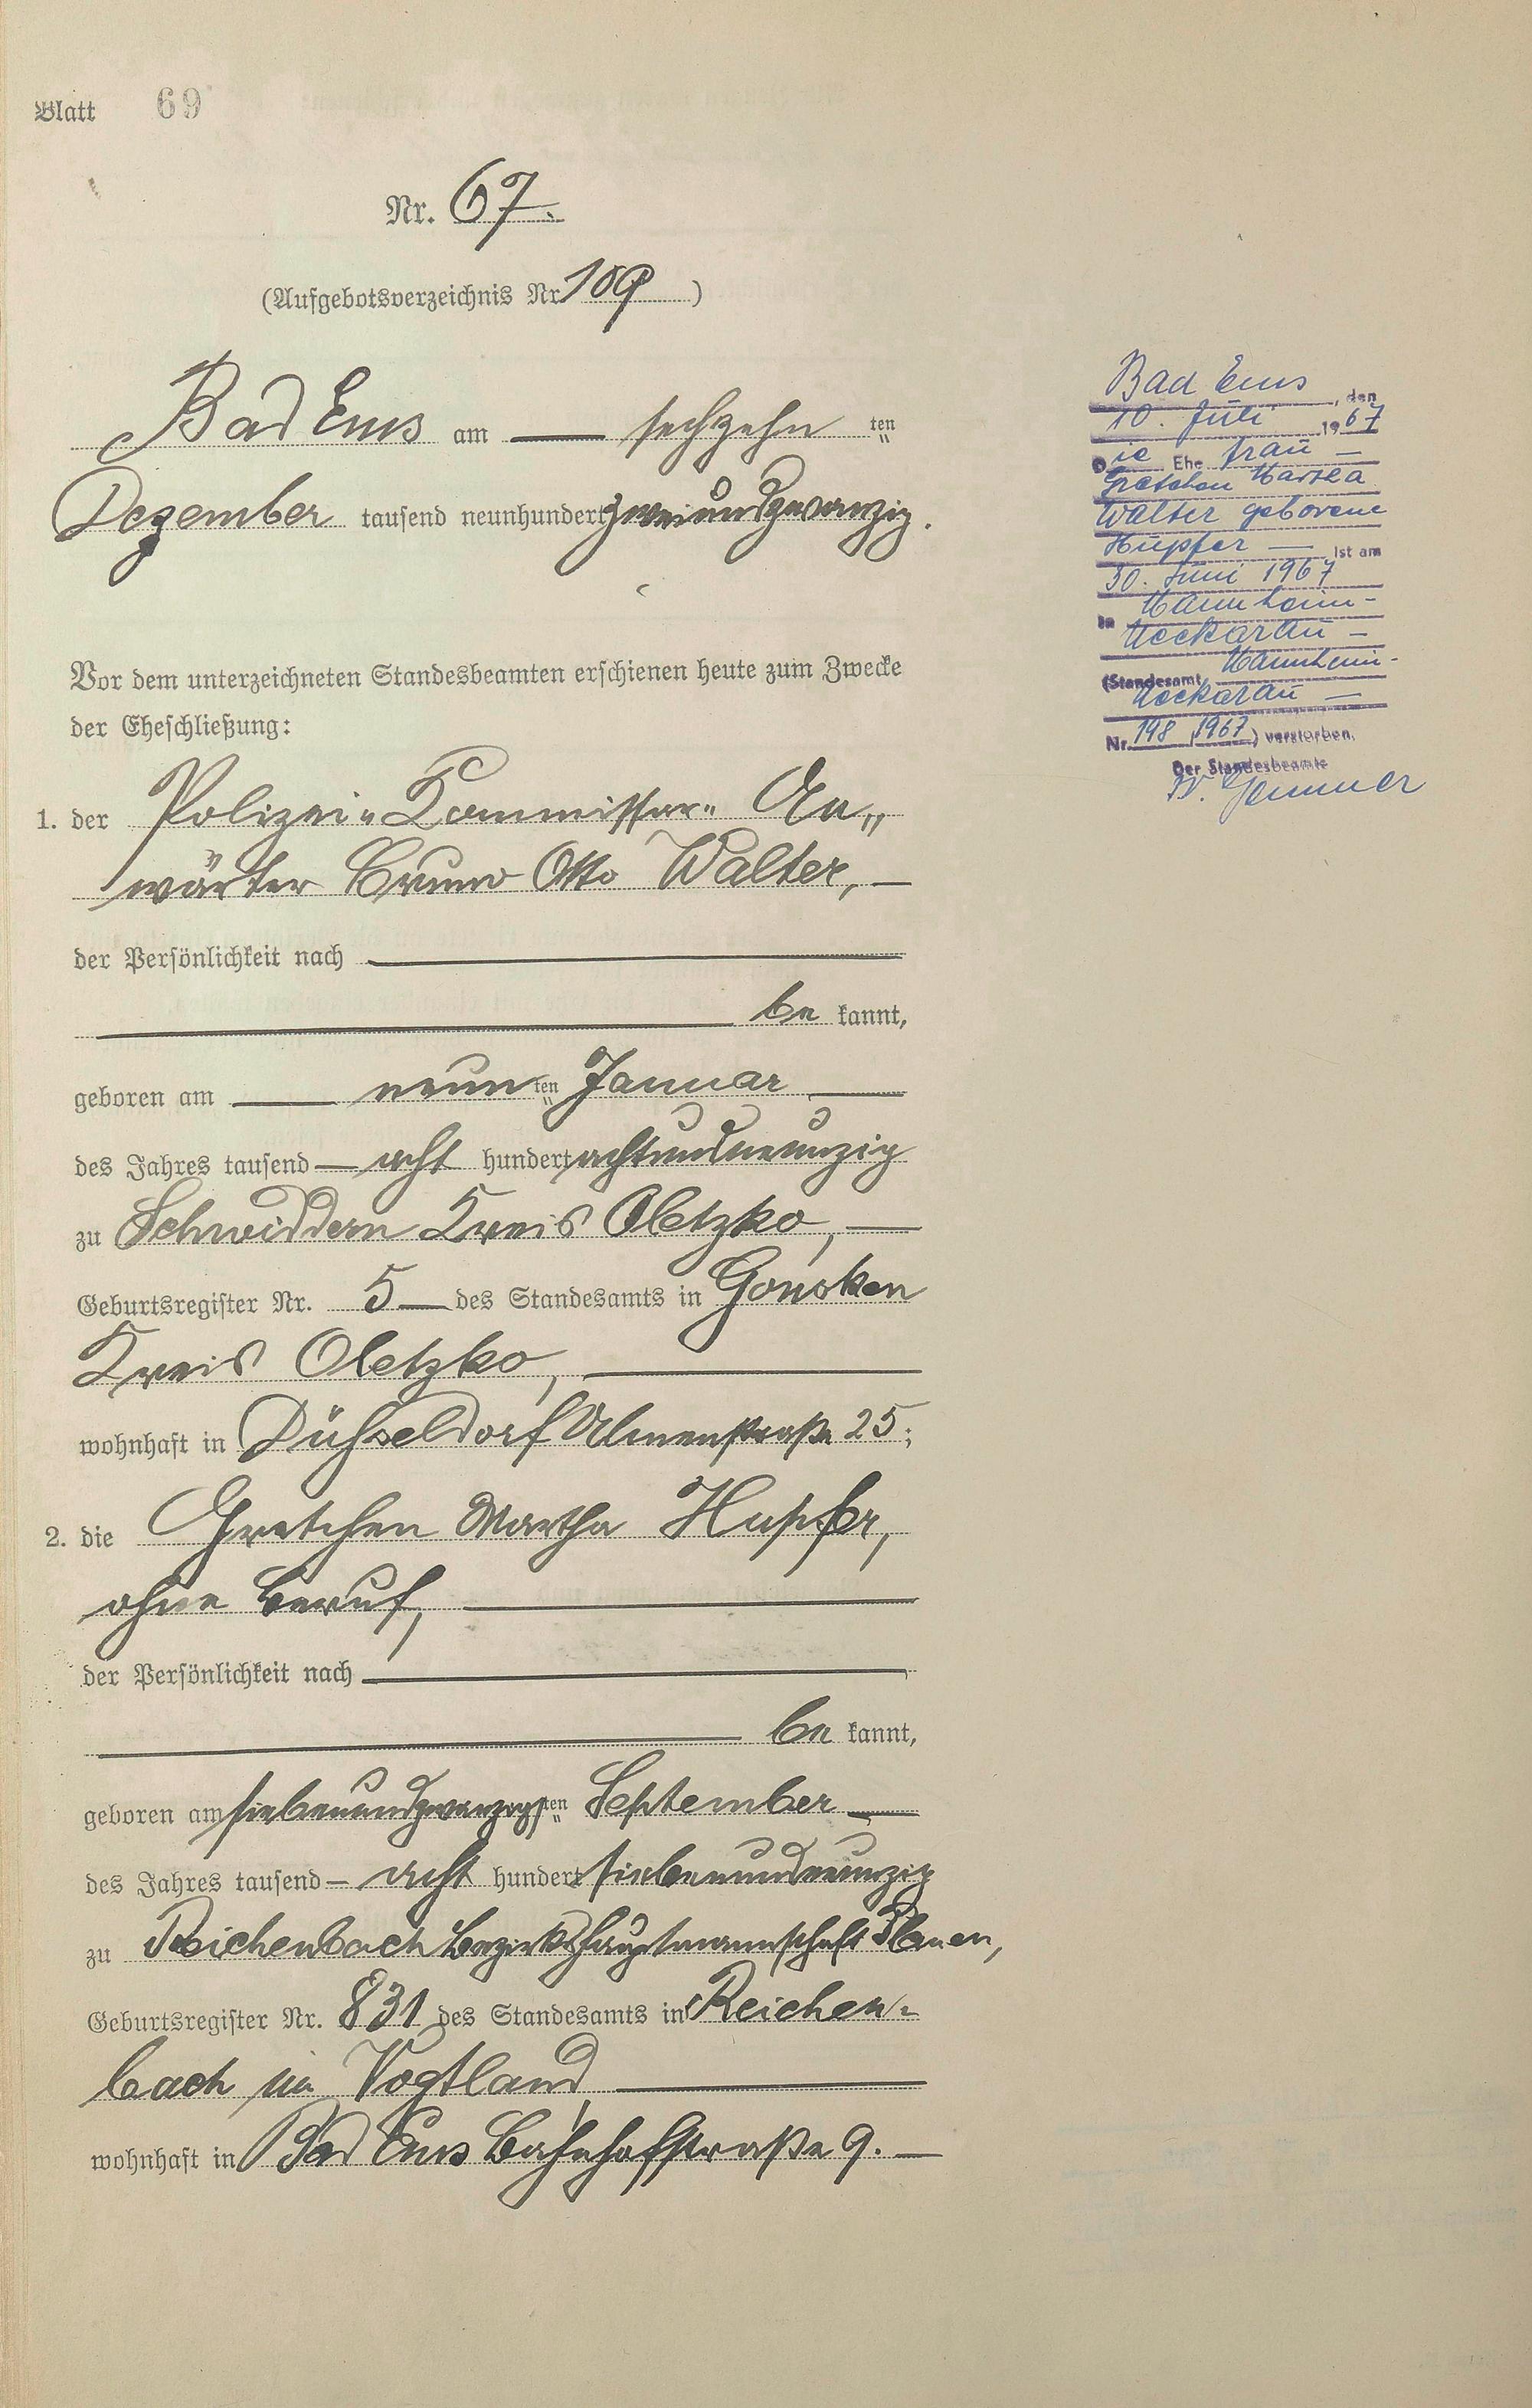 Blatt 69
Nr. 67.
(Aufgebotsverzeichnis Nr. 109)
Bad Ems am — sechzehn ten
Dezember tausend neunhundert zweiundzwanzig.
Vor dem unterzeichneten Standesbeamten erschienen heute zum Zwecke
der Eheschließung:
1. der Polizei-Kommissar-An-
wärter Bruno Otto Walter, —
der Persönlichkeit nach —
— be kannt,
geboren am — neun ten Januar —
des Jahres tausend — acht hundert achtundneunzig
zu Schwiddern Kreis Oletzko, —
Geburtsregister Nr. 5 — des Standesamts in Gonsken
Kreis Oletzko, —
wohnhaft in Düsseldorf Ulmenstraße 25;
2. die Gretchen Martha Hupfer,
ohne Beruf, —
der Persönlichkeit nach —
— be kannt,
geboren am siebenundzwanzigsten September —
des Jahres tausend — acht hundert siebenundneunzig
zu Reichenbach Bezirkshauptmannschaft Plauen,
Geburtsregister Nr. 831 des Standesamts in Reichen-
bach im Vogtland, —
wohnhaft in Bad Ems Bahnhofstraße 9. —
Bad Ems, den
10. Juli 1967
Die Ehe frau —
Gretchen Martha
Walter geborene
Hupfer — ist am
30. Juni 1967
in Mannheim-
Neckarau —
(Standesamt Mannheim-
Neckarau —
Nr. 148, 1967) verstorben.
Der Standesbeamte